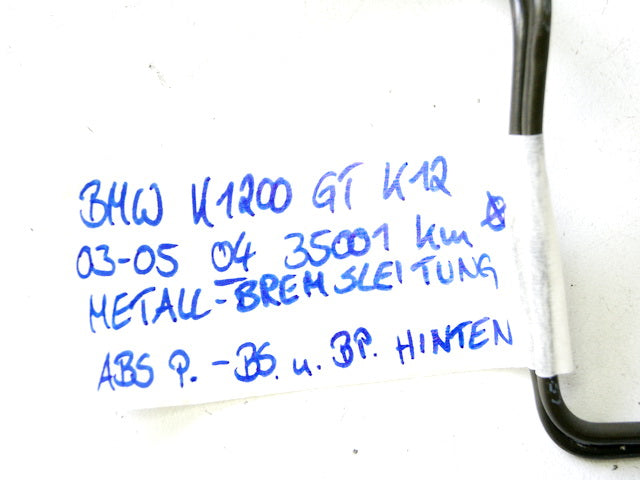 BMW K1200 GT K12
03-05 04 35001 km
METALL-BREMSLEITUNG
ABS P. - BS. u. BP. HINTEN